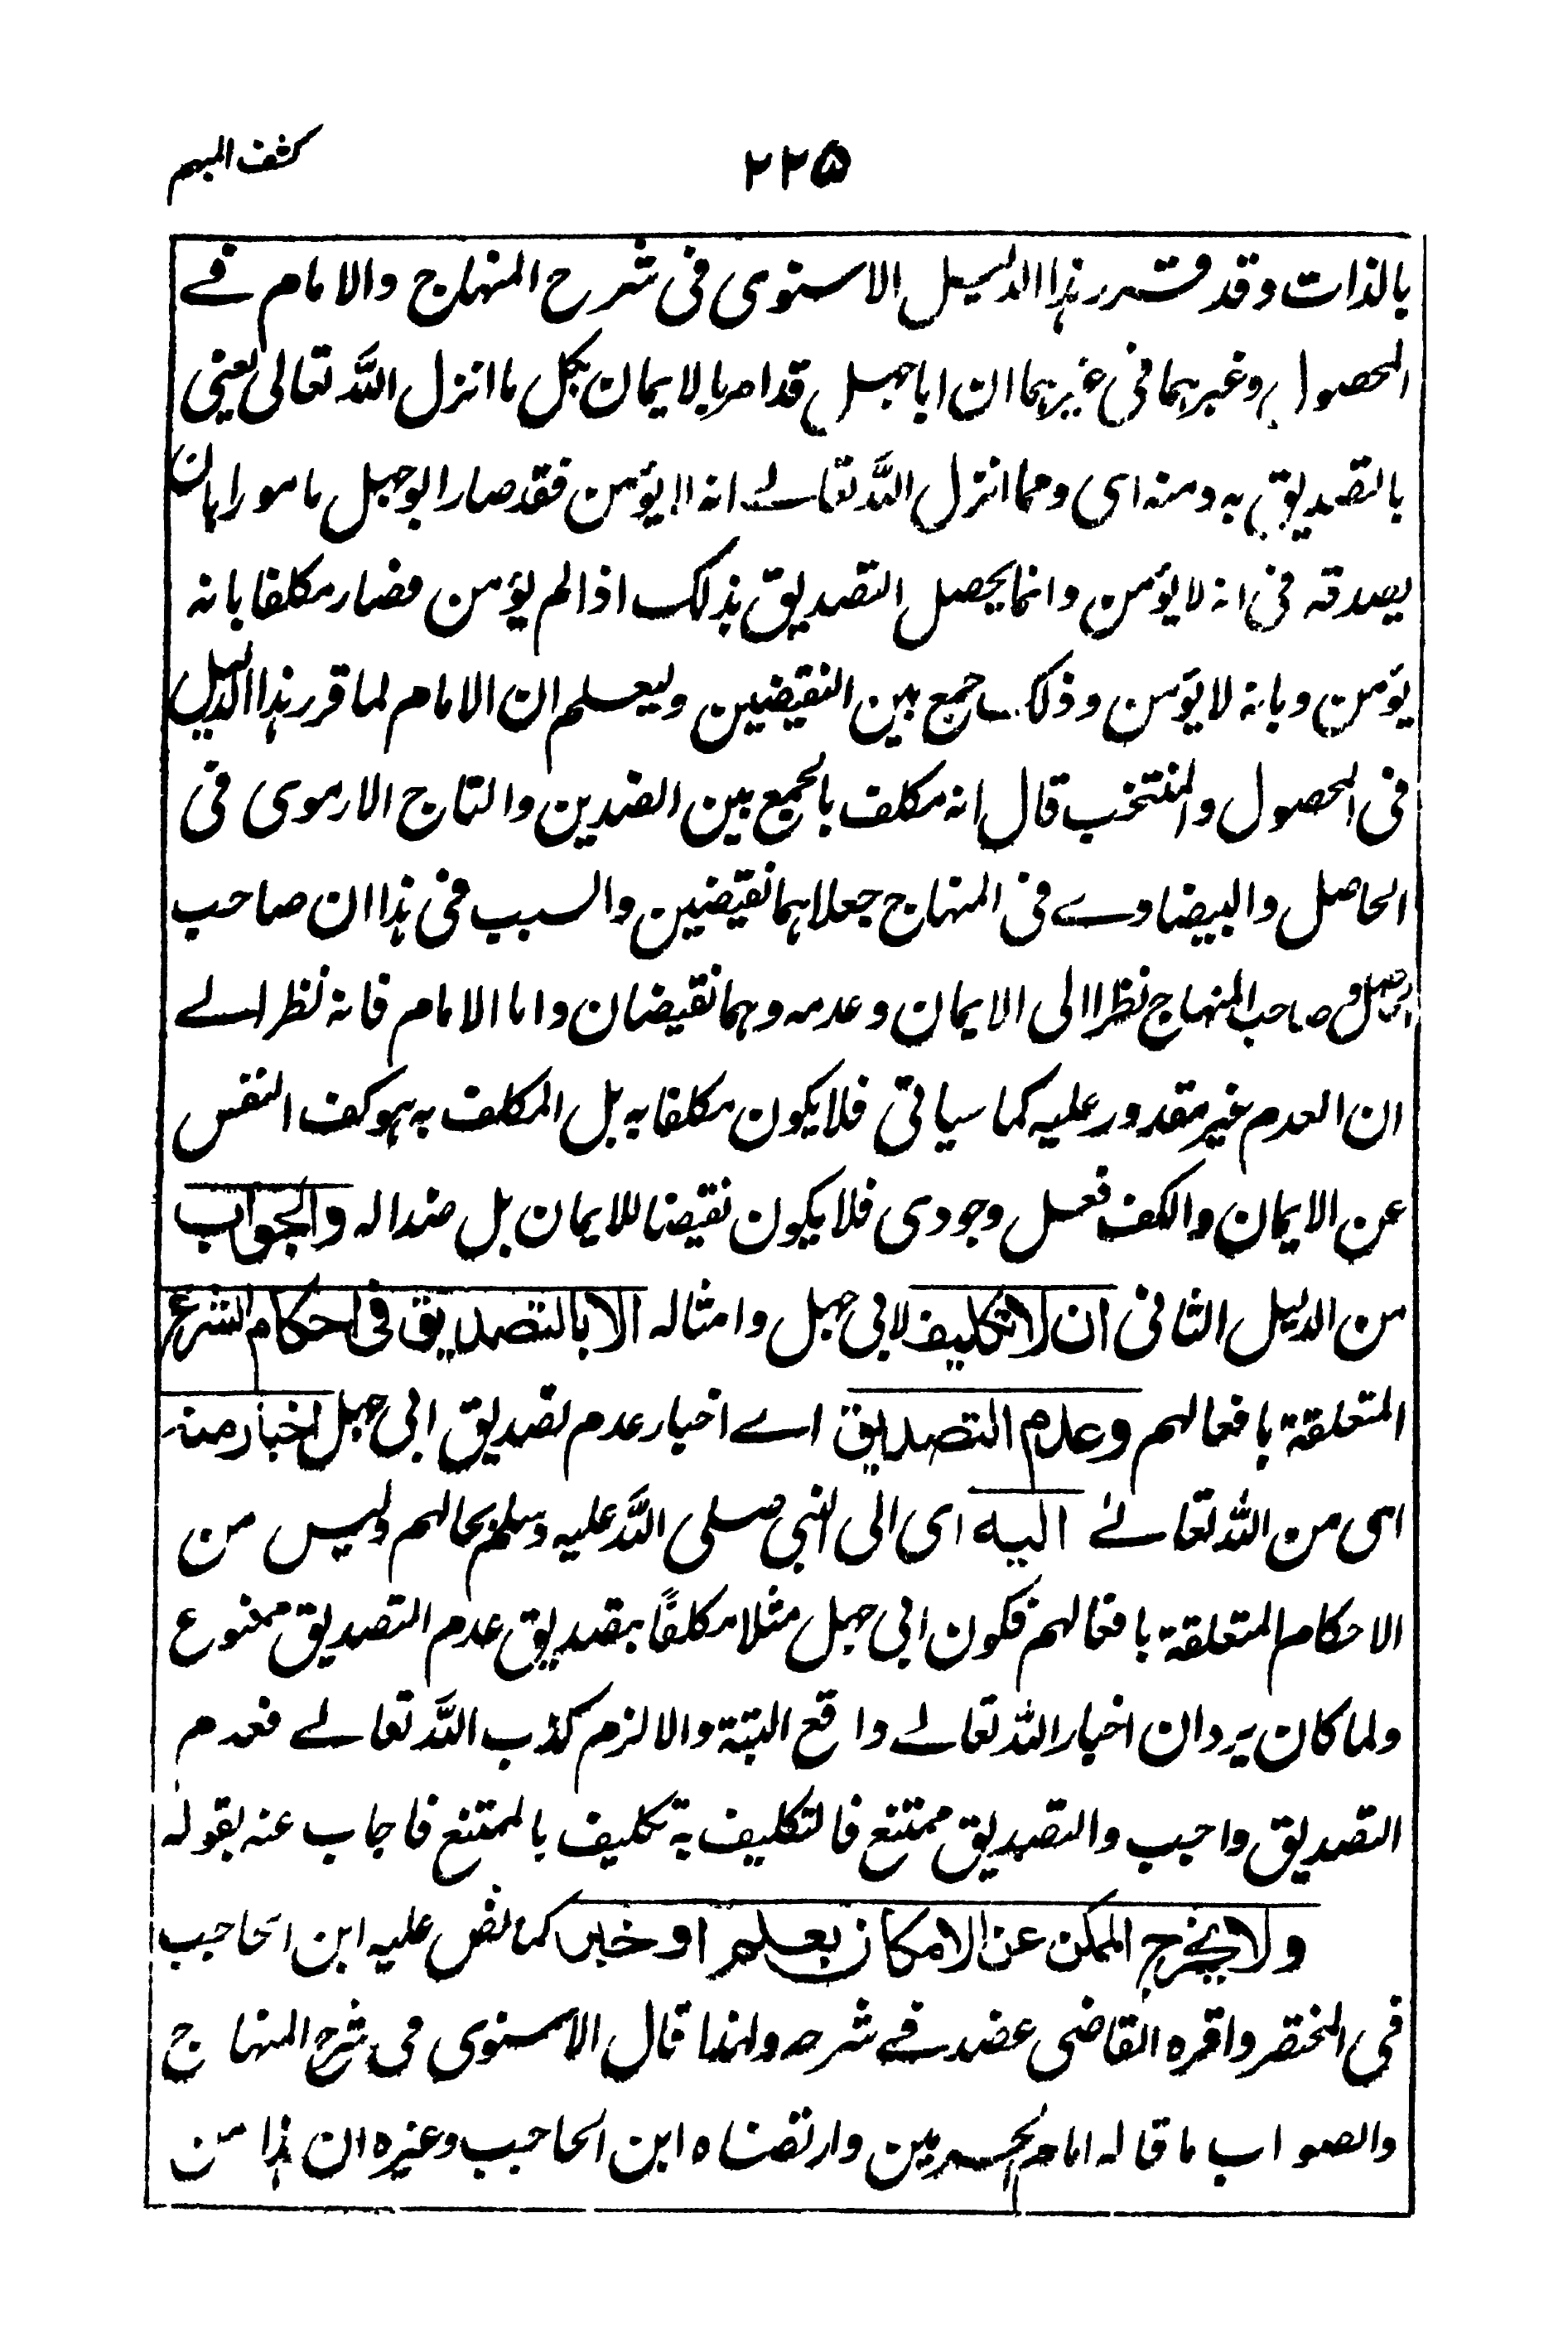 كشف المبهم
٢٢۵
بالذات وقد قرر هذا الدليل الاسنوى فى شرح المنهاج والامام فے
المحصول وغيرهما فى غيرهما ان ابا جهل قد امر بالايمان بكل ما انزل الله تعالى يعنى
بالتصديق به ومنه اى ومما انزل الله تعالے انه لا يؤمن فقد صار ابو جهل مامورا بان
يصدقه فى انه لا يؤمن وانما يحصل التصديق بذلك اذا لم يؤمن فصار مكلفا بانه
يؤمن وبانه لا يؤمن وذلك جمع بين النقيضين وليعلم ان الامام لما قرر هذا الدليل
فى المحصول والمنتخب قال انه مكلف بالجمع بين الضدين والتاج الارموى فى
الحاصل والبيضاوے فى المنهاج جعلاهما نقيضين والسبب فى هذا ان صاحب
الحاصل وصاحب المنهاج نظرا الى الايمان وعدمه وهما نقيضان واما الامام فانه نظر الے
ان العدم غير مقدور عليه كما سياتى فلا يكون مكلفا به بل المكلف به هو كف النفس
عن الايمان والكف فعل وجودى فلا يكون نقيضا للايمان بل ضدا له والجواب
من الدليل الثانى ان لا تكليف لابى جهل وامثاله الا بالتصديق فى احكام الشرع
المتعلقة بافعالهم وعدم التصديق اے اخبار عدم تصديق ابى جهل اخبار منه
اى من الله تعالےٰ اليه اى الى النبى صلى الله عليه وسلم بحالهم وليس من
الاحكام المتعلقة بافعالهم فكون ابى جهل مثلا مكلفًا بتصديق عدم التصديق ممنوع
ولما كان يرد ان اخبار الله تعالے واقع البتة والا لزم كذب الله تعالے فعدم
التصديق واجب والتصديق ممتنع فالتكليف به تكليف بالممتنع فاجاب عنه بقوله
ولا يخرج الممكن عن الامكان بعلم او خبر كما نص عليه ابن الحاجب
فى المختصر واقره القاضى عضد فے شرحه ولهذا قال الاسنوى فى شرح المنهاج
والصواب ما قاله امام الحرمين وارتضاه ابن الحاجب وغيره ان هذا من